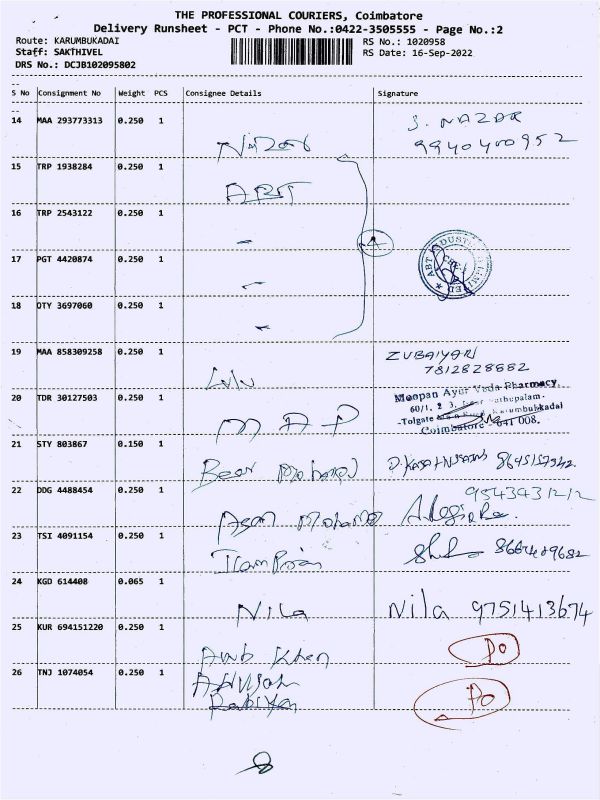 THE PROFESSIONAL COURIERS, Coimbatore
Delivery Runsheet - PCT - Phone No.:0422-3505555 - Page No.:2
Route: KARUMBUKADAI
RS No.: 1020958
Staff: SAKTHIVEL
RS Date: 16-Sep-2022
DRS No.: DCJB102095802
S No Consignment No Weight PCS Consignee Details Signature
14 MAA 293773313 0.250 1
S. NAZAR
9940400952
15 TRP 1938284 0.250 1
16 TRP 2543122 0.250 1
17 PGT 4420874 0.250 1
18 OTY 3697060 0.250 1
19 MAA 858309258 0.250 1
Lulu
7812828682
20 TDR 30127503 0.250 1
M A P
Moopan Ayur Veda Pharmacy
60/1, 2 3,
Tolgate Karumbukkadai
Coimbatore - 641 008.
21 STY 803867 0.150 1
22 DDG 4488454 0.250 1
23 TSI 4091154 0.250 1
24 KGD 614408 0.065 1
Nila
Nila 9751413674
25 KUR 694151220 0.250 1
Khan
Do
26 TNJ 1074054 0.250 1
Do